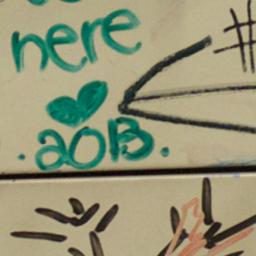 here
#
.2013.